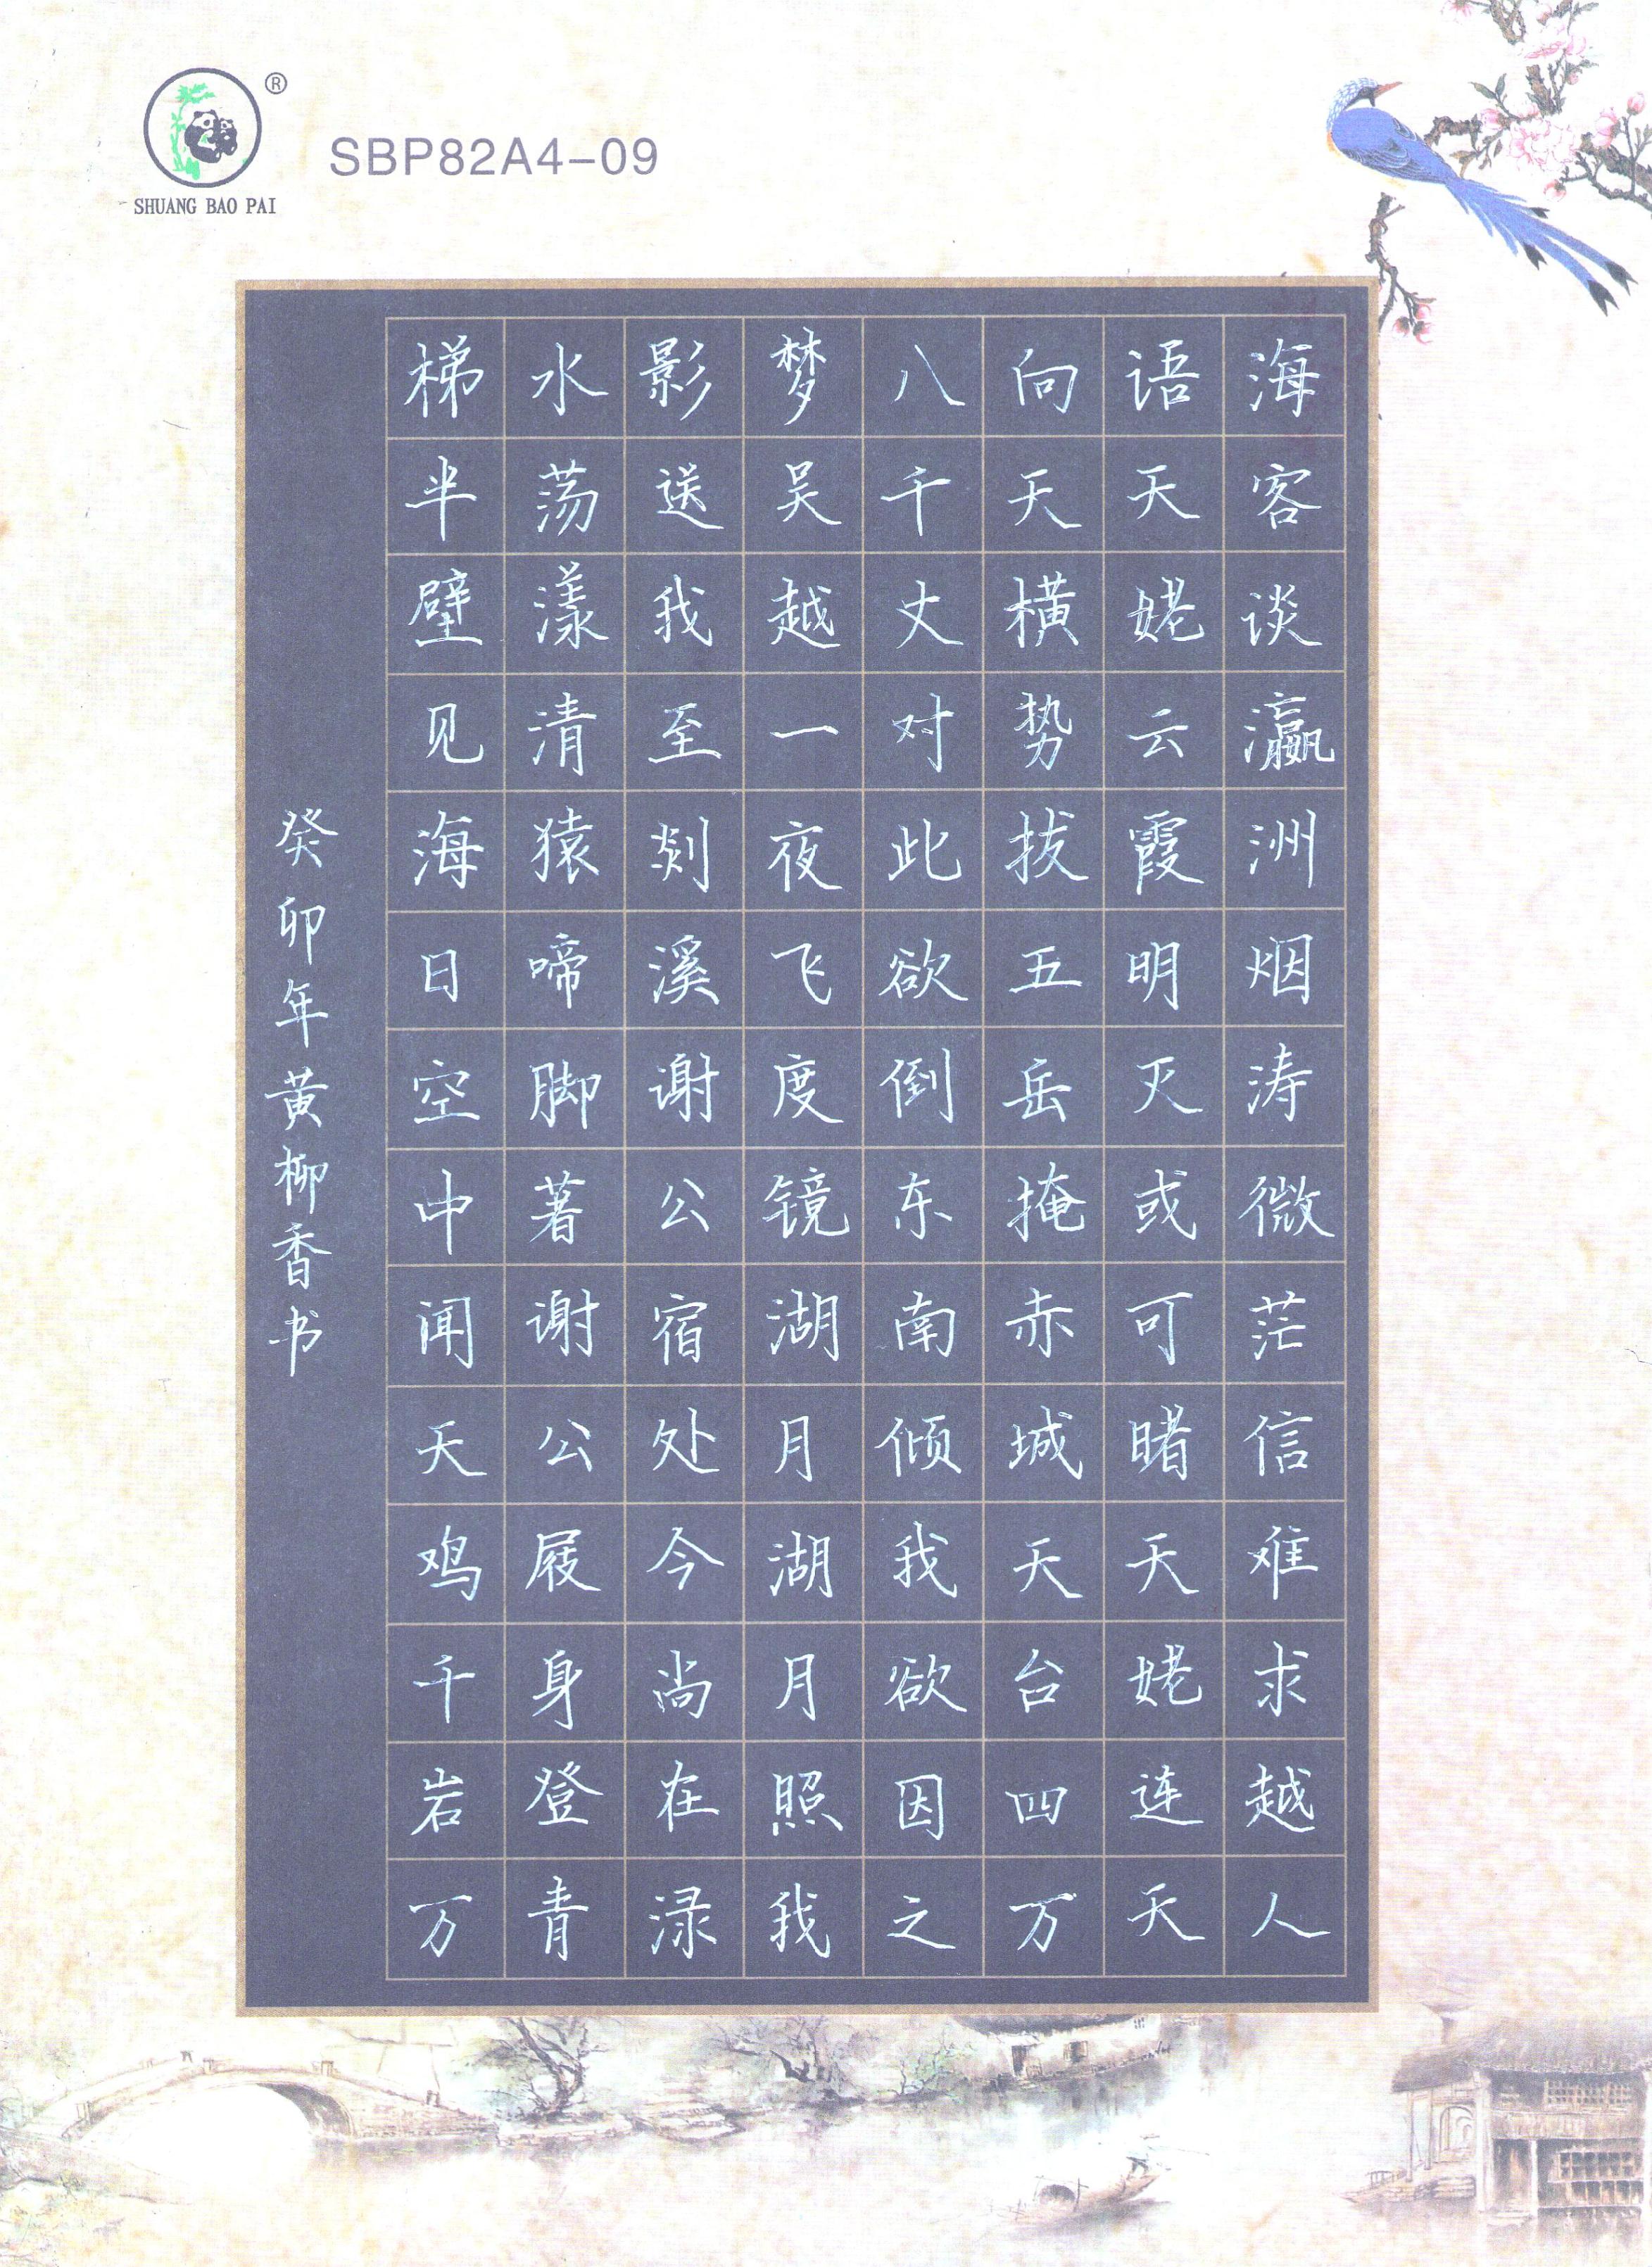 SHUANG BAO PAI
®
SBP82A4-09
海客谈瀛洲烟涛微茫信难求越人
语天姥云霞明灭或可睹天姥连天
向天横势拔五岳掩赤城天台四万
八千丈对此欲倒东南倾我欲因之
梦吴越一夜飞度镜湖月湖月照我
影送我至剡溪谢公宿处今尚在渌
水荡漾清猿啼脚著谢公屐身登青
梯半壁见海日空中闻天鸡千岩万
癸卯年黄柳香书